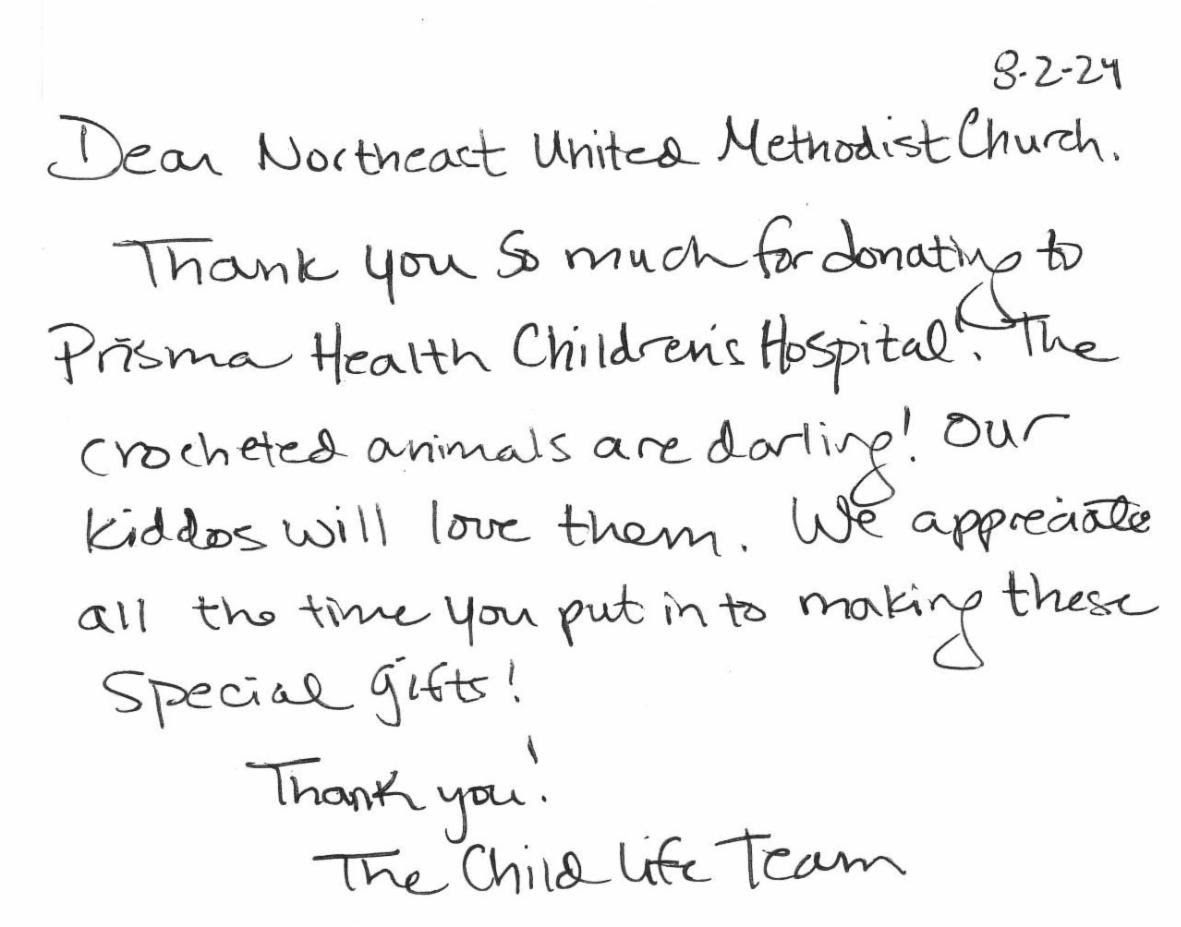 8-2-24
Dear Northeast United Methodist Church.
Thank you so much for donating to
Prisma Health Children's Hospital! The
crocheted animals are darling! Our
kiddos will love them. We appreciate
all the time you put in to making these
special gifts!
Thank you!
The Child Life Team